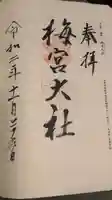 奉拝
梅宮大社
令和二年十一月二十六日